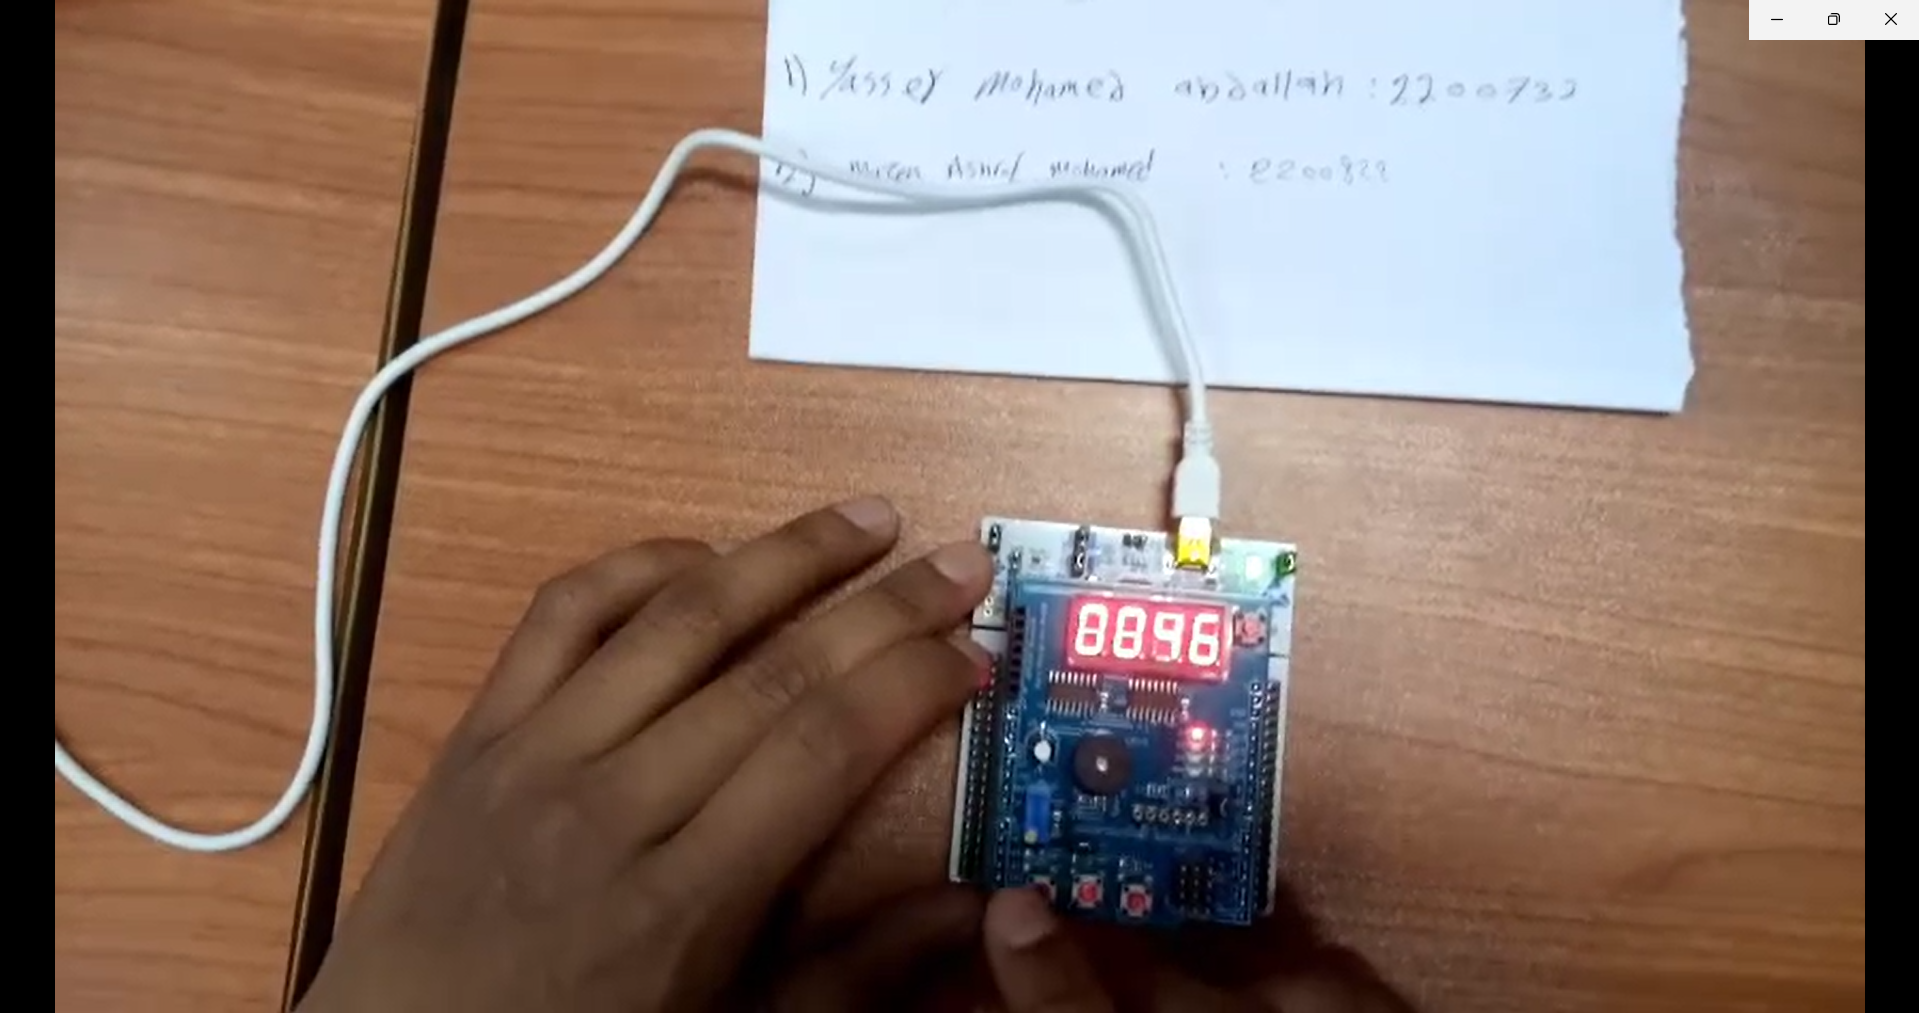 1) Yasser Mohamed abdallah : 2200732
2) Mohamed : 2200
8896